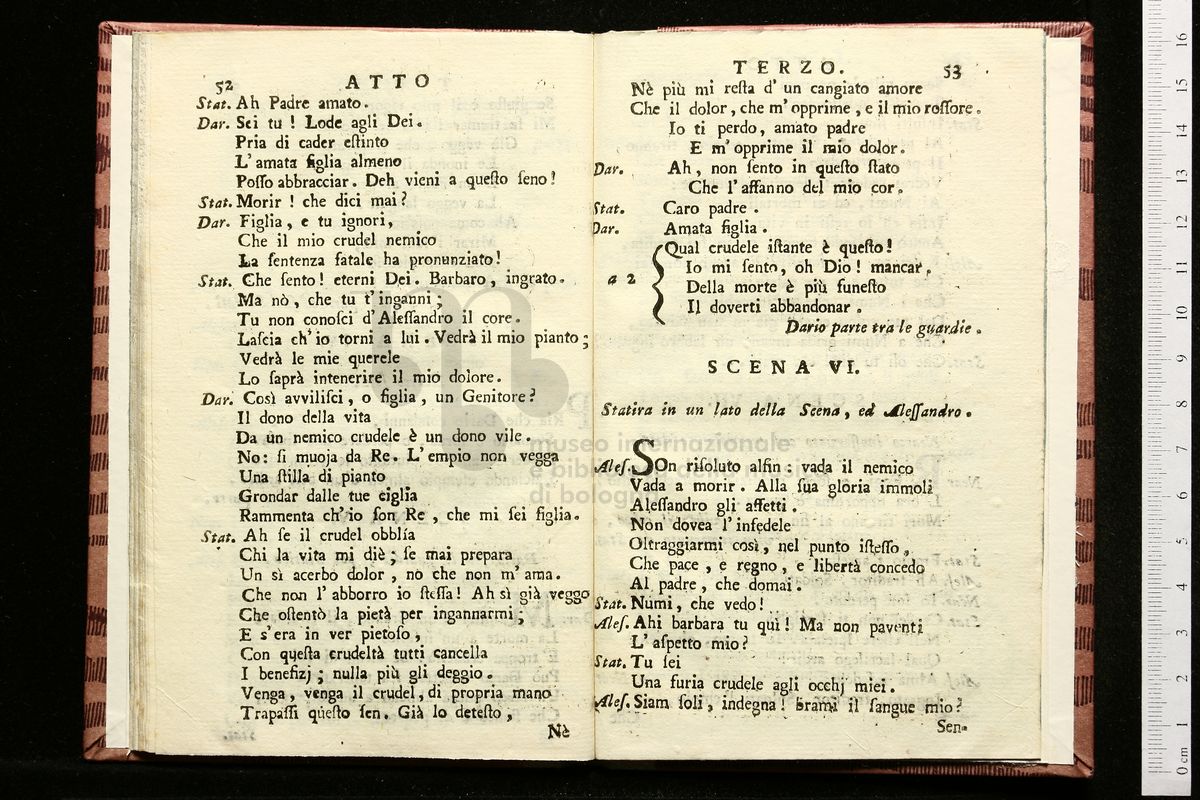 52 ATTO
Stat. Ah Padre amato.
Dar. Sei tu! Lode agli Dei.
Pria di cader eſtinto
L'amata figlia almeno
Poſſo abbracciar. Deh vieni a queſto ſeno!
Stat. Morir! che dici mai?
Dar. Figlia, e tu ignori,
Che il mio crudel nemico
La ſentenza fatale ha pronunziato!
Stat. Che ſento! eterni Dei. Barbaro, ingrato.
Ma nò, che tu t'inganni;
Tu non conoſci d'Aleſſandro il core.
Laſcia ch'io torni a lui. Vedrà il mio pianto;
Vedrà le mie querele
Lo ſaprà intenerire il mio dolore.
Dar. Così avviliſci, o figlia, un Genitore?
Il dono della vita
Da un nemico crudele è un dono vile.
No: ſi muoja da Re. L'empio non vegga
Una ſtilla di pianto
Grondar dalle tue ciglia
Rammenta ch'io ſon Re, che mi ſei figlia.
Stat. Ah ſe il crudel obblìa
Chi la vita mi diè; ſe mai prepara
Un sì acerbo dolor, no che non m'ama.
Che non l'abborro io ſteſſa! Ah sì già veggo
Che oſtentò la pietà per ingannarmi;
E s'era in ver pietoſo,
Con queſta crudeltà tutti cancella
I benefizj; nulla più gli deggio.
Venga, venga il crudel, di propria mano
Trapaſſi queſto ſen. Già lo deteſto,
Nè
TERZO. 53
Nè più mi reſta d'un cangiato amore
Che il dolor, che m'opprime, e il mio roſſore.
Io ti perdo, amato padre
E m'opprime il mio dolor.
Dar. Ah, non ſento in queſto ſtato
Che l'affanno del mio cor.
Stat. Caro padre.
Dar. Amata figlia.
Qual crudele iſtante è queſto!
Io mi ſento, oh Dio! mancar,
a 2 Della morte è più funeſto
Il doverti abbandonar.
Dario parte tra le guardie.
SCENA VI.
Statira in un lato della Scena, ed Aleſſandro.
Aleſ. SOn riſoluto alfin: vada il nemico
Vada a morir. Alla ſua gloria immoli
Aleſſandro gli affetti.
Non dovea l'infedele
Oltraggiarmi così, nel punto iſteſſo,
Che pace, e regno, e libertà concedo
Al padre, che domai.
Stat. Numi, che vedo!
Aleſ. Ahi barbara tu qui! Ma non paventi
L'aſpetto mio?
Stat. Tu ſei
Una furia crudele agli occhj miei.
Aleſ. Siam ſoli, indegna! brami il ſangue mio?
Sen-
museo internazionale
e biblioteca della musica
di bologna
0 cm 1 2 3 4 5 6 7 8 9 10 11 12 13 14 15 16